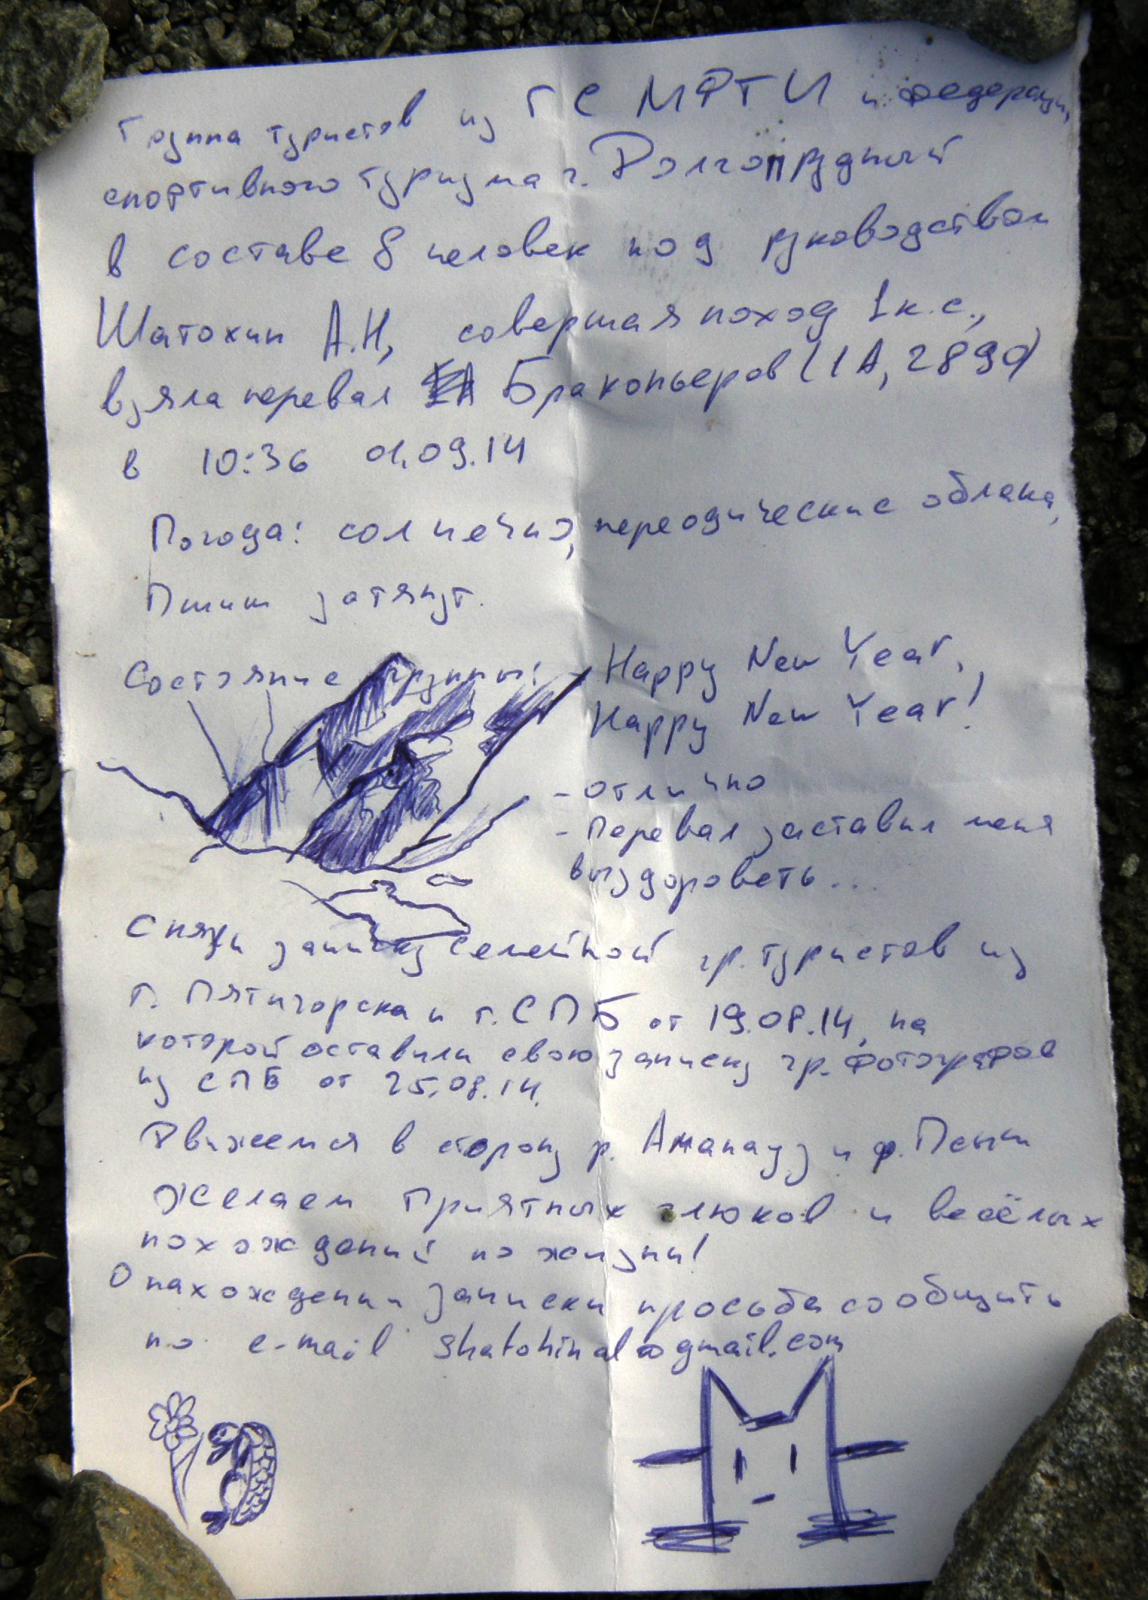 Группа туристов из ГС МФТИ и Федерации
спортивного туризма г. Долгопрудный
в составе 8 человек под руководством
Шатохин А.Н, совершая поход 1к.с.,
взяла перевал Браконьеров (1А, 2890)
в 10:36 01.09.14
Погода: солнечно, переодические облака,
Пшиш затянут.
Состояние группы:
Happy New Year,
Happy New Year!
- отлично
- Перевал заставил меня
выздороветь...
Сняли записку семейной гр. туристов из
г. Пятигорска и г. СПБ от 19.08.14, на
которой оставили свою записку гр. фотографов
из СПБ от 25.08.14.
Движемся в сторону р. Аманауз и ф. Пешт
Желаем приятных глюков и весёлых
похождений по жизни!
О нахождении записки просьба сообщить
по e-mail shatohinal@gmail.com